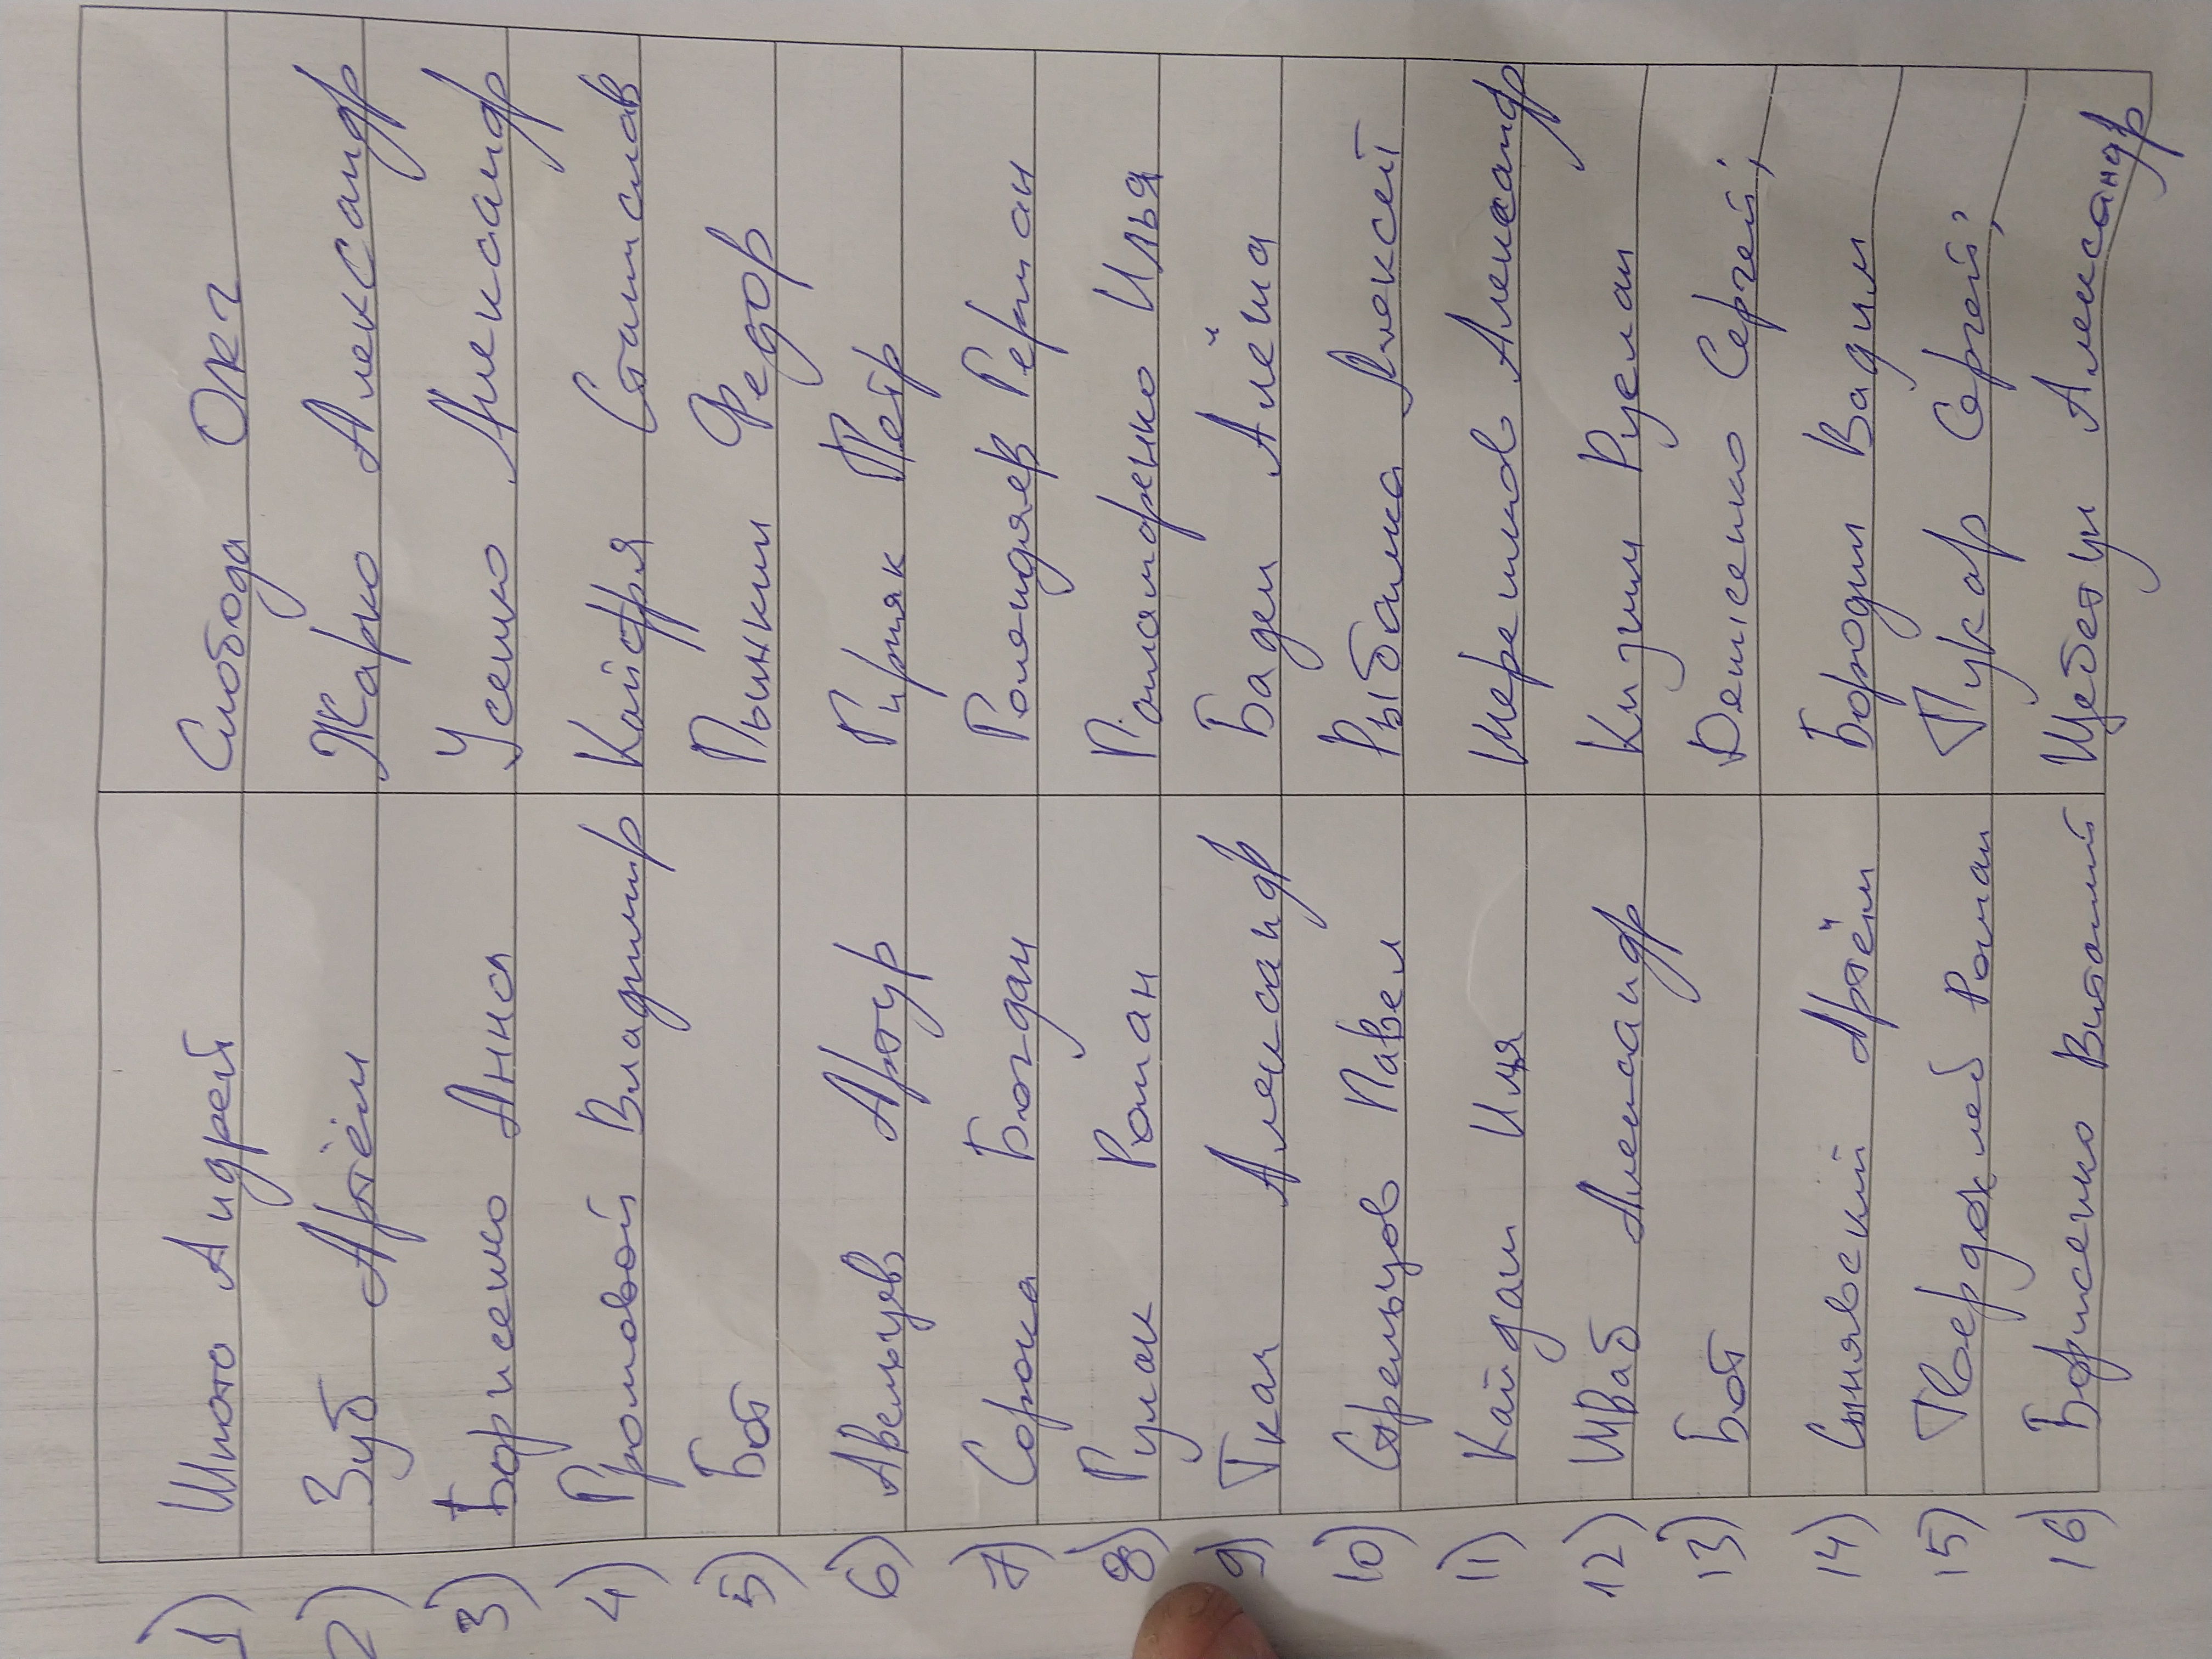 1) Шкюто Андрей Слобода Олег
2) Зуб Артём Жарко Александр
3) Борисенко Анна Усенко Александр
4) Громовой Владимир Кайдря Станислав
5) Бот Пынкин Федор
6) Авельцев Артур Гирняк Петр
7) Сорока Богдан Голяндяев Герман
8) Гулак Роман Паламаренко Илья
9) Ткач Александр Баден Алёша
10) Стрельцов Павел Рыбалка Алексей
11) Кайдаш Илья Шерешков Александр
12) Шваб Александр Кизим Руслан
13) Бот Денисенко Сергей;
14) Сынявский Артём Бородин Вадим
15) Твердохлеб Роман Пукар Сергей;
16) Борисенко Виталий Щебетун Александр